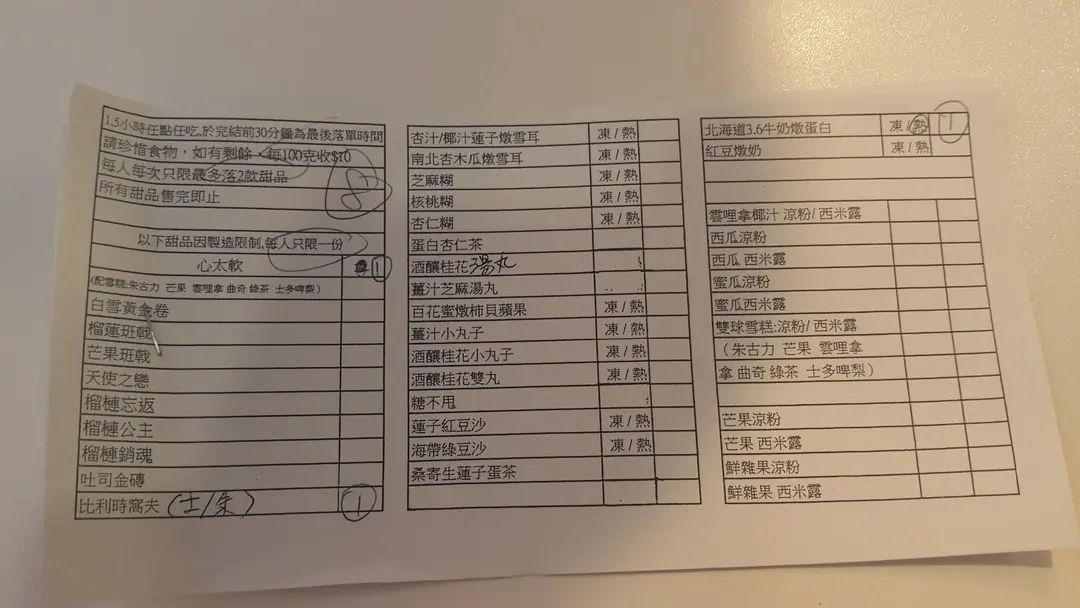 1.5小時任點任吃,於完結前30分鐘為最後落單時間
請珍惜食物，如有剩餘、每100克收$10
每人每次只限最多落2款甜品
8
所有甜品售完即止
以下甜品因製造限制,每人只限一份
心太軟 1
(配雪糕:朱古力 芒果 雲哩拿 曲奇 綠茶 士多啤梨)
白雪黃金卷
榴蓮班戟
芒果班戟
天使之戀
榴槤忘返
榴槤公主
榴槤銷魂
吐司金磚
比利時窩夫 (士/朱) 1
杏汁/椰汁蓮子燉雪耳 凍/熱
南北杏木瓜燉雪耳 凍/熱
芝麻糊 凍/熱
核桃糊 凍/熱
杏仁糊 凍/熱
蛋白杏仁茶
酒釀桂花湯丸
薑汁芝麻湯丸
百花蜜燉柿貝蘋果 凍/熱
薑汁小丸子 凍/熱
酒釀桂花小丸子 凍/熱
酒釀桂花雙丸 凍/熱
糖不甩
蓮子紅豆沙 凍/熱
海帶綠豆沙 凍/熱
桑寄生蓮子蛋茶
北海道3.6牛奶燉蛋白 凍/熱 1
紅豆燉奶 凍/熱
雲哩拿椰汁 涼粉/ 西米露
西瓜涼粉
西瓜 西米露
蜜瓜涼粉
蜜瓜西米露
雙球雪糕:涼粉/ 西米露
（朱古力 芒果 雲哩拿
拿 曲奇 綠茶 士多啤梨）
芒果涼粉
芒果 西米露
鮮雜果涼粉
鮮雜果 西米露